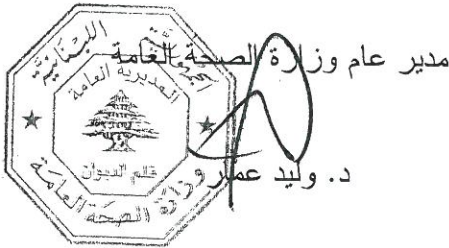 مدير عام وزارة الصحة العامة
الجمهورية اللبنانية
المديرية العامة
قلم الديوان
وزارة الصحة العامة
د. وليد عمار